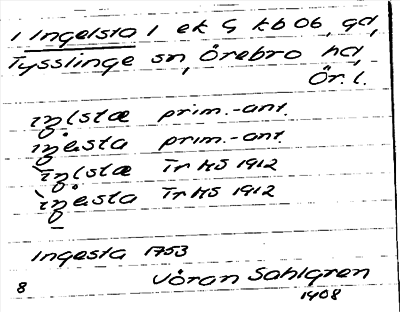 1 Ingelsta 1 ek G kb 06, gd,
Tysslinge sn, Örebro hd,
Ör. l.
prim.-ant.
prim.-ant.
Tr HS 1912
Tr HS 1912
Ingesta 1753
8 Jöran Sahlgren
1908